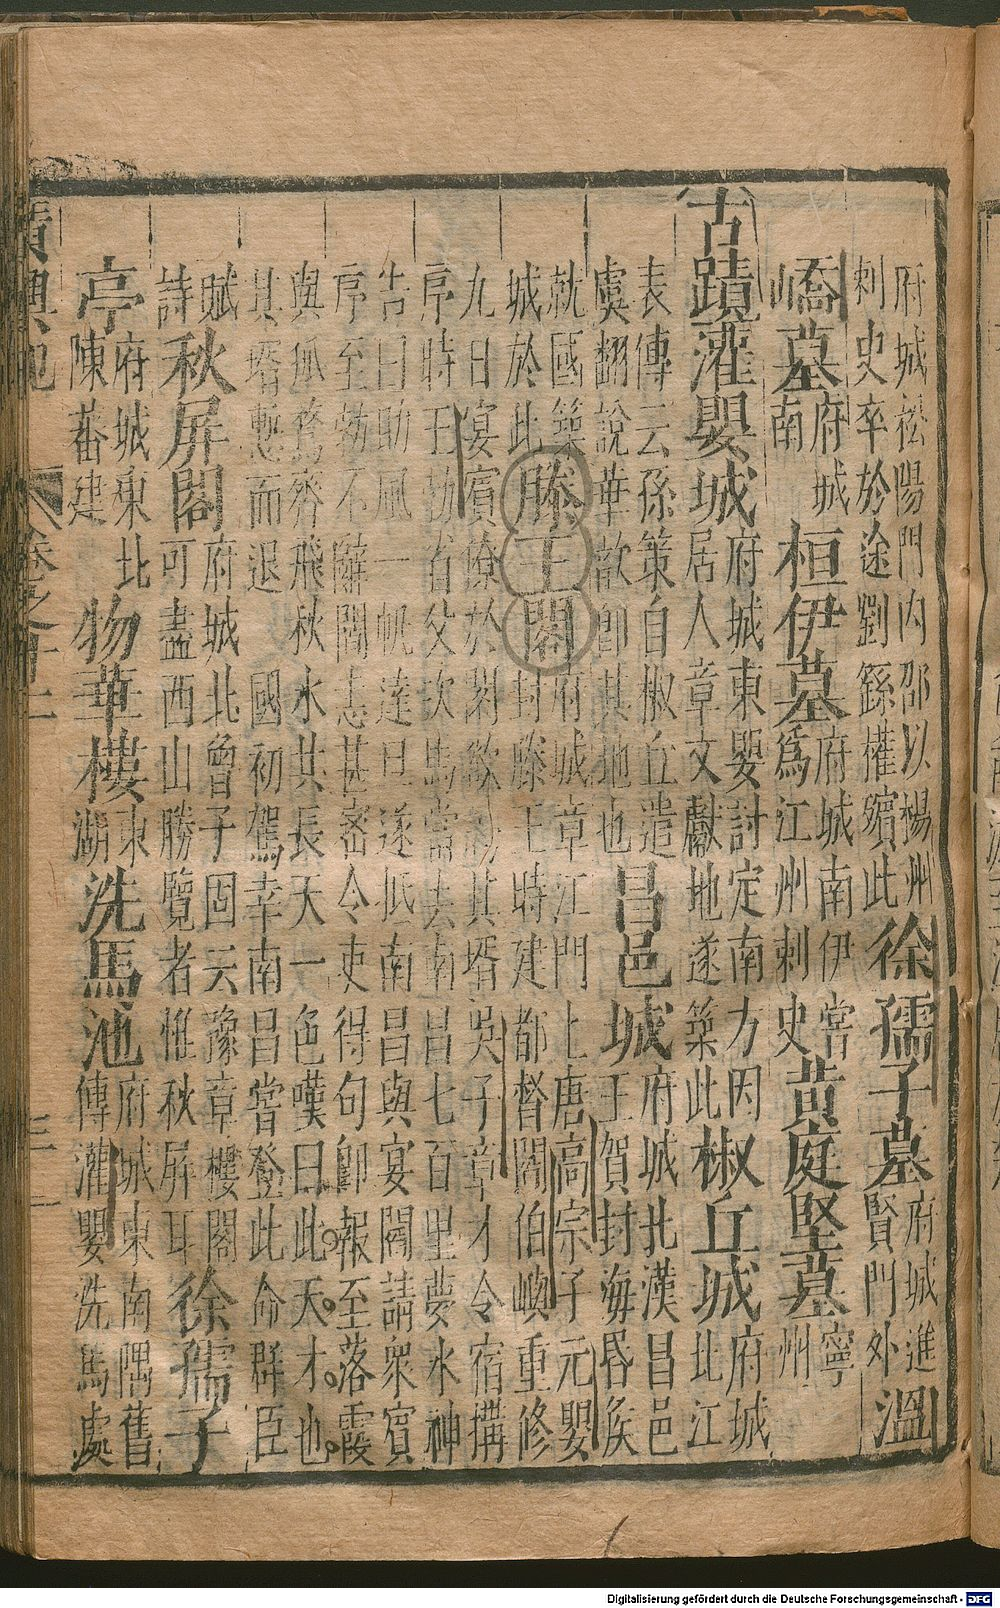 府城松陽門內邵以楊州
刺史卒於途劉繇權殯此
徐孺子墓
府城進
賢門外
溫
嶠墓
府城
南
桓伊墓
府城南伊嘗
爲江州刺史
黃庭堅墓
寧
州
古蹟
灌嬰城
府城東嬰討定南方因
居人章文獻地遂築此
椒丘城
府城
北江
表傳云孫策自椒丘遣
虞翻說華歆卽其地也
昌邑城
府城北漢昌邑
王賀封海昏侯
就國築
城於此
滕王閣
府城章江門上唐高宗子元嬰
封滕王時建都督閻伯嶼重修
九日宴賓僚於閣欲誇其壻吳子章才令宿搆
序時王勃省父次馬當去南昌七百里夢水神
告曰助風一帆達旦遂抵南昌與宴閻請衆賓
序至勃不辭閻恚甚密令吏得句卽報至落霞
與孤鶩齊飛秋水共長天一色嘆曰此天才也
其壻慙而退 國初駕幸南昌嘗登此命群臣
賦
詩
秋屏閣
府城北曾子固云豫章樓閣
可盡西山勝覽者惟秋屏耳
徐孺子
亭
府城東北
陳蕃建
物華樓
東
湖
洗馬池
府城東南隅舊
傳灌嬰洗馬處
廣輿記
卷之十二